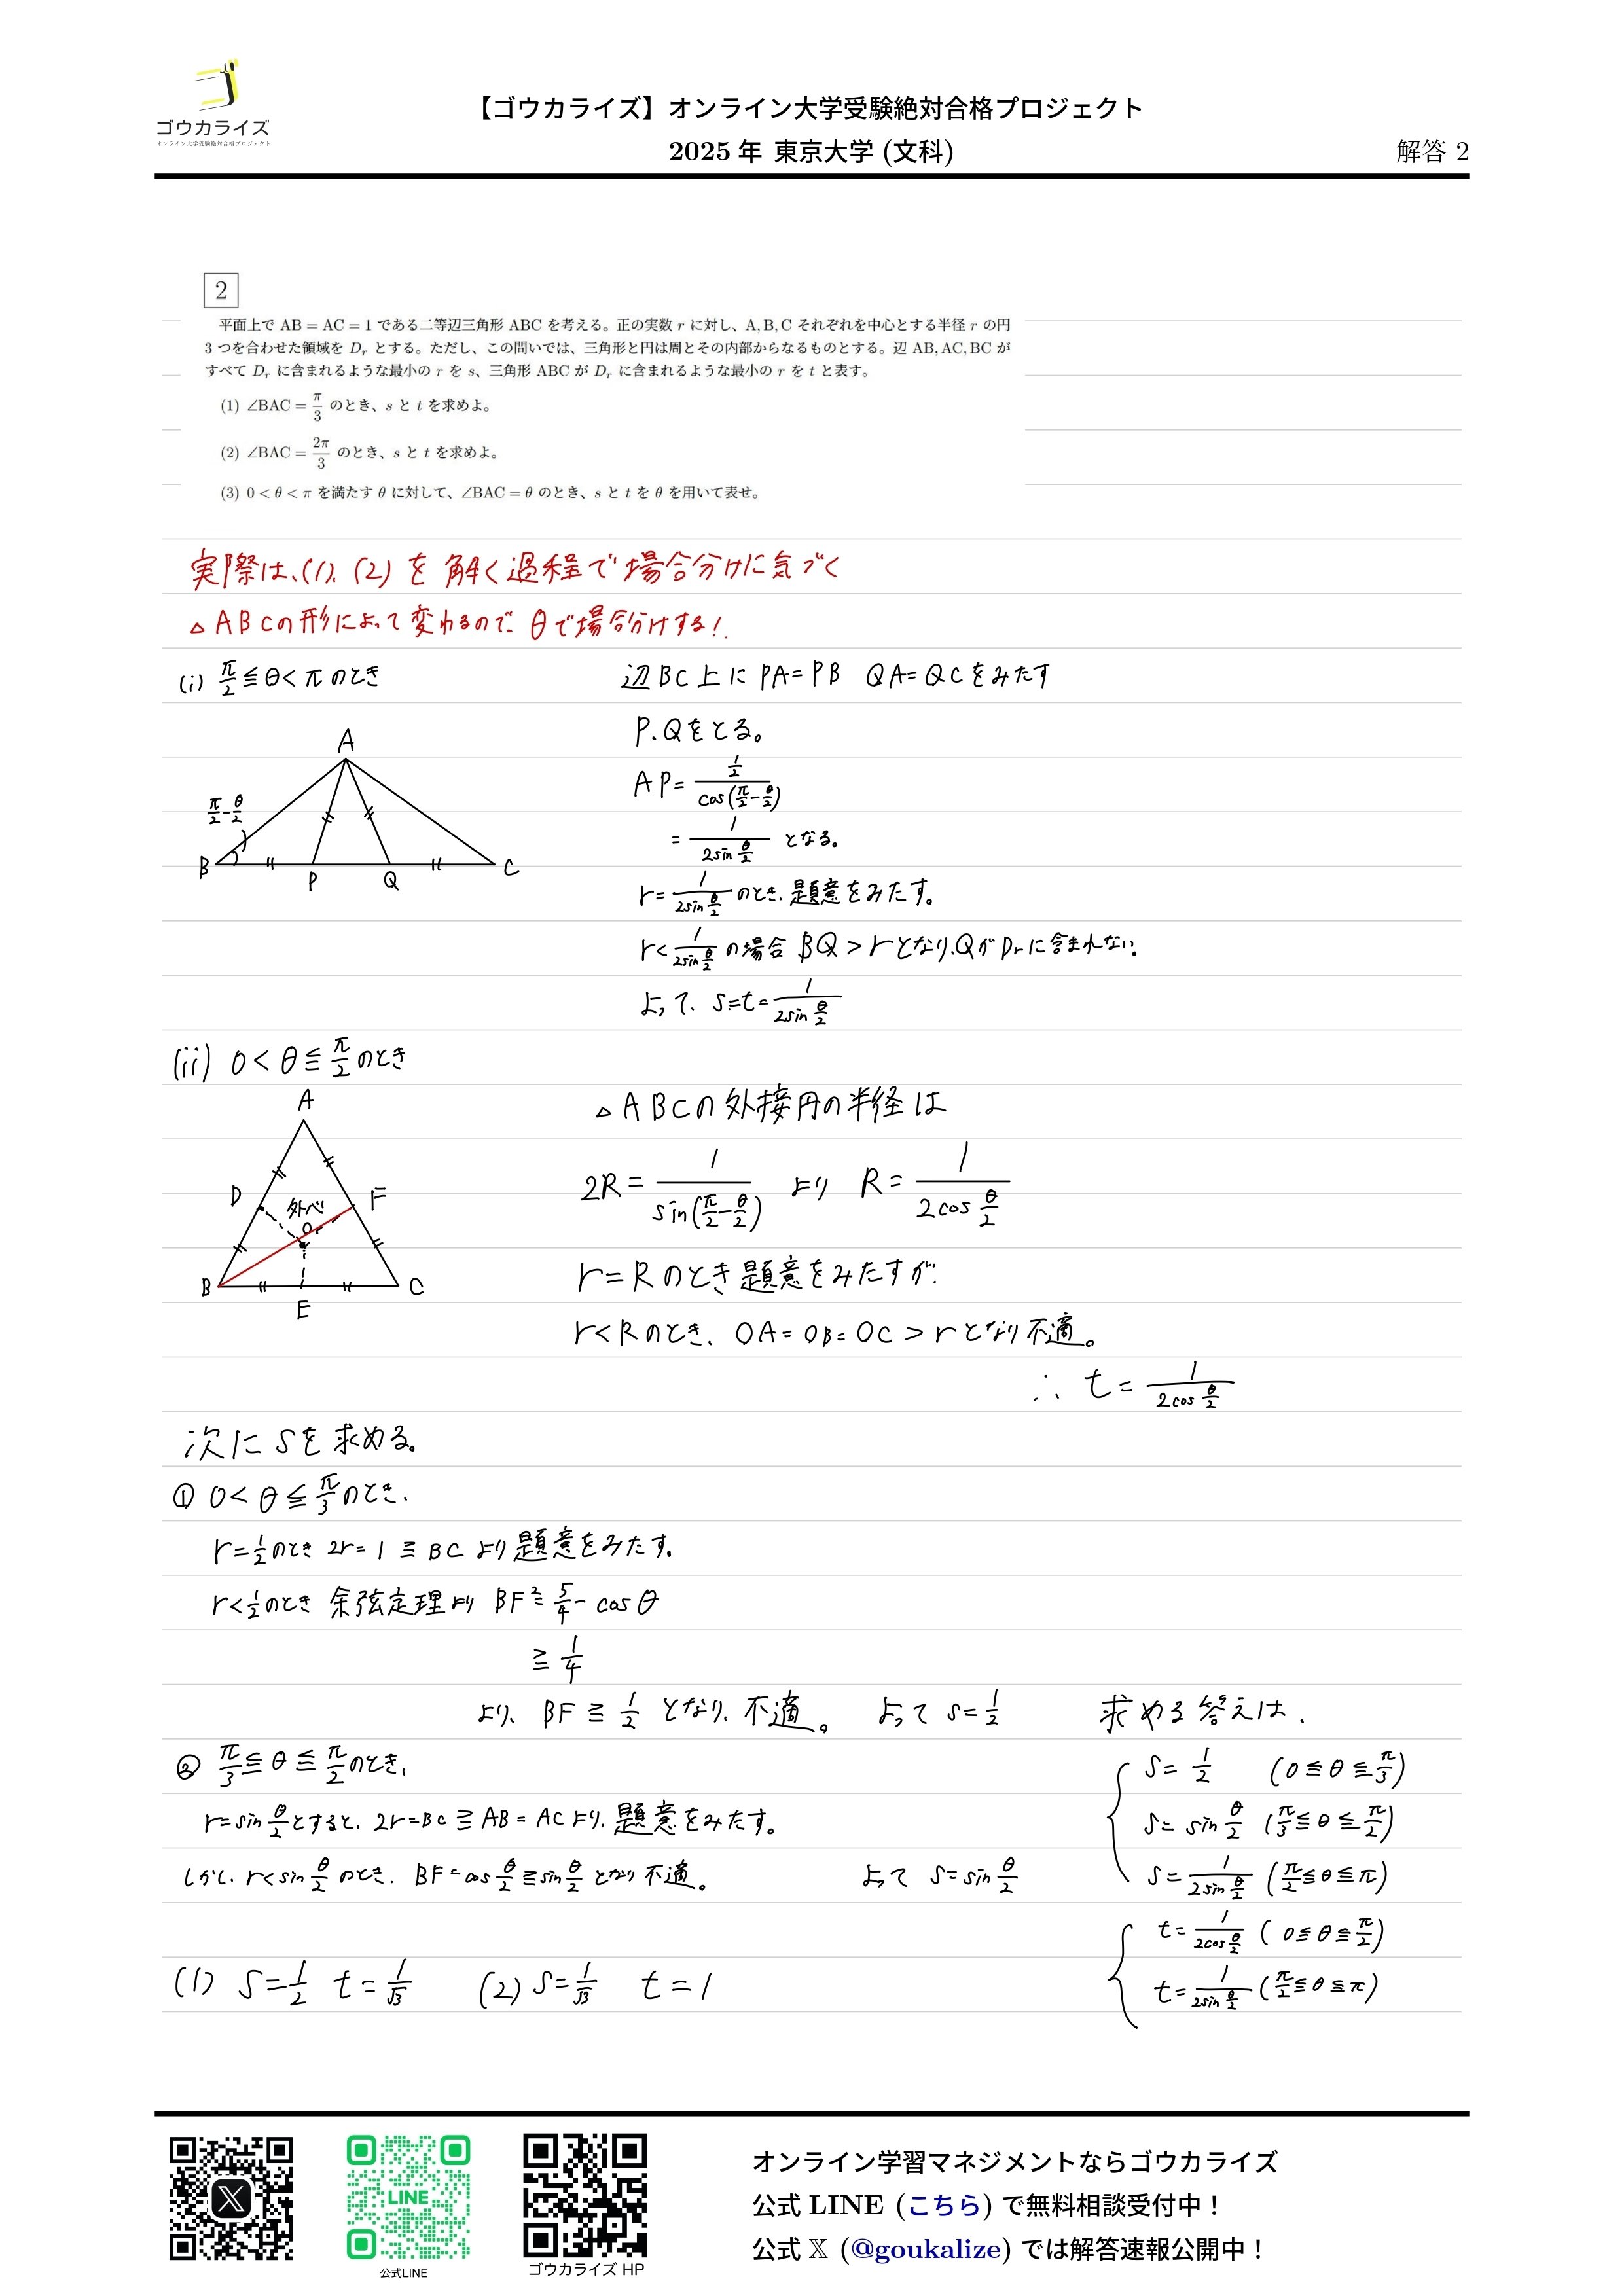 ゴウカライズ
オンライン大学受験絶対合格プロジェクト
【ゴウカライズ】オンライン大学受験絶対合格プロジェクト
2025 年 東京大学 (文科)
解答 2
2
平面上で AB = AC = 1 である二等辺三角形 ABC を考える。正の実数 r に対し、A, B, C それぞれを中心とする半径 r の円
3 つを合わせた領域を D_r とする。ただし、この問いでは、三角形と円は周とその内部からなるものとする。辺 AB, AC, BC が
すべて D_r に含まれるような最小の r を s、三角形 ABC が D_r に含まれるような最小の r を t と表す。
(1) ∠BAC = π/3 のとき、s と t を求めよ。
(2) ∠BAC = 2π/3 のとき、s と t を求めよ。
(3) 0 < θ < π を満たす θ に対して、∠BAC = θ のとき、s と t を θ を用いて表せ。
実際は、(1)、(2) を 解く過程で場合分けに気づく
△ABCの形によって変わるので、θで場合分けする!
(i) π/2 ≦ θ < π のとき
A
π/2 - θ/2
B
P
Q
C
辺BC上に PA=PB QA=QCをみたす
P、Qをとる。
AP= (1/2)/cos(π/2 - θ/2)
= 1/(2sin θ/2) となる。
r= 1/(2sin θ/2) のとき、題意をみたす。
r< 1/(2sin θ/2) の場合 BQ>rとなり、QがDrに含まれない。
よって、S=t= 1/(2sin θ/2)
(ii) 0 < θ ≦ π/2 のとき
A
D
外心
O
F
B
E
C
△ABCの外接円の半径は
2R = 1/sin(π/2 - θ/2) より R = 1/(2cos θ/2)
r=Rのとき題意をみたすが、
r<Rのとき、OA=OB=OC>rとなり不適。
∴ t = 1/(2cos θ/2)
次に Sを求める。
① 0 < θ ≦ π/3 のとき、
r=1/2のとき 2r=1≧BC より題意をみたす。
r<1/2のとき 余弦定理より BF²= 5/4 - cosθ
≧ 1/4
より、BF ≧ 1/2 となり、不適。 よって S=1/2
② π/3 ≦ θ ≦ π/2 のとき、
r=sin θ/2とすると、2r=BC≧AB=ACより、題意をみたす。
しかし、r<sin θ/2 のとき、BF=cos θ/2 ≧ sin θ/2 となり 不適。 よって S=sin θ/2
求める答えは、
S= 1/2 (0≦θ≦π/3)
S= sin θ/2 (π/3≦θ≦π/2)
S= 1/(2sin θ/2) (π/2≦θ≦π)
t= 1/(2cos θ/2) (0≦θ≦π/2)
t= 1/(2sin θ/2) (π/2≦θ≦π)
(1) S=1/2 t=1/√3 (2) S=1/√3 t=1
LINE
公式LINE
ゴウカライズ HP
オンライン学習マネジメントならゴウカライズ
公式 LINE (こちら) で無料相談受付中！
公式 𝕏 (@goukalize) では解答速報公開中！